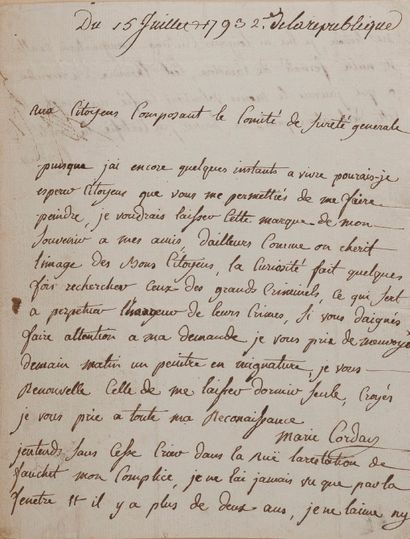 Du 15 Juillet 1793 2e de la republique
aux Citoyens Composant le Comité de Sureté generale
puisque jai encore quelques instants a vivre pourais-je
esperer Citoyens que vous me permettiés de me faire
peindre, je voudrais laisser Cette marque de mon
Souvenir a mes amis, d'ailleurs Comme on cherit
limage des Bons Citoyens, la Curiosité fait quelques
fois rechercher Ceux des grands Criminels, ce qui sert
a perpetuer lhorreur de leurs Crimes, Si vous daignés
faire attention a ma demande je vous prie de m'envoyer
demain matin un peintre en mignature, je vous
Renouvelle Celle de me laisser dormir Seule, Croyés
je vous prie a toute ma Reconaissance
Marie Corday
jentends Sans Cesse Crier dans la Rue larestation de
fauchet mon Complice, je ne lai jamais vu que par la
fenetre et il y a plus de deux ans, je ne laime ny